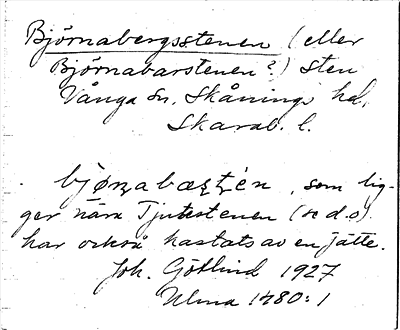 Björnabergsstenen (eller
Björnabarstenen?) sten
Vånga sn. Skånings hd.
Skarab. l.
bjǫrnabæʂʈén, som lig-
ger nära Tjutestenen (se d.o).
har också kastats av en jätte.
Joh. Götlind 1927
Ulma 1480:1